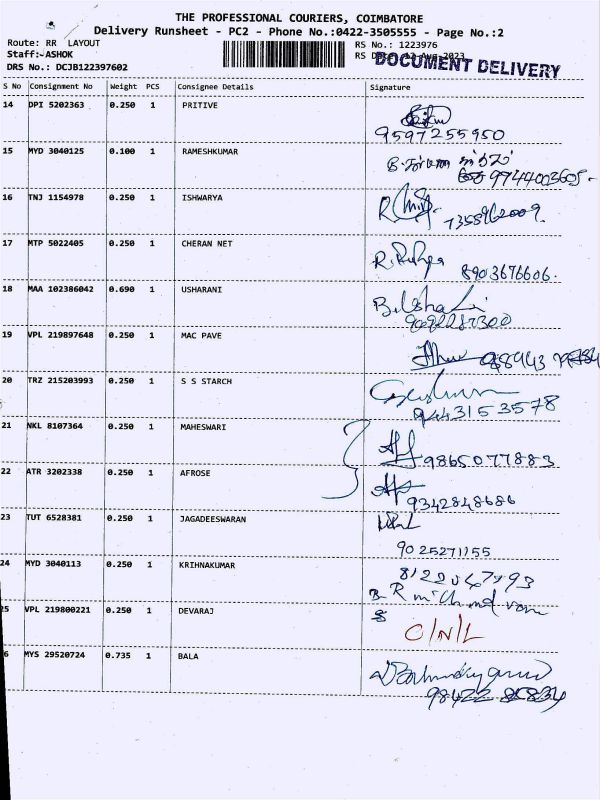 THE PROFESSIONAL COURIERS, COIMBATORE
Delivery Runsheet - PC2 - Phone No.:0422-3505555 - Page No.:2
Route: RR LAYOUT
RS No.: 1223976
Staff:-ASHOK
RS Date: 12-Aug-2023
DOCUMENT DELIVERY
DRS No.: DCJB122397602
S No Consignment No Weight PCS Consignee Details Signature
14 DPI 5202363 0.250 1 PRITIVE
9597255950
15 MYD 3040125 0.100 1 RAMESHKUMAR
9744003605
16 TNJ 1154978 0.250 1 ISHWARYA
7355962009
17 MTP 5022405 0.250 1 CHERAN NET
8903676606
18 MAA 102386042 0.690 1 USHARANI
B. Usha
9092287300
19 VPL 219897648 0.250 1 MAC PAVE
98943
20 TRZ 215203993 0.250 1 S S STARCH
9443153578
21 NKL 8107364 0.250 1 MAHESWARI
9865077883
22 ATR 3202338 0.250 1 AFROSE
9342848686
23 TUT 6528381 0.250 1 JAGADEESWARAN
9025271155
24 MYD 3040113 0.250 1 KRIHNAKUMAR
25 VPL 219800221 0.250 1 DEVARAJ
O/N/L
6 MYS 29520724 0.735 1 BALA
98422